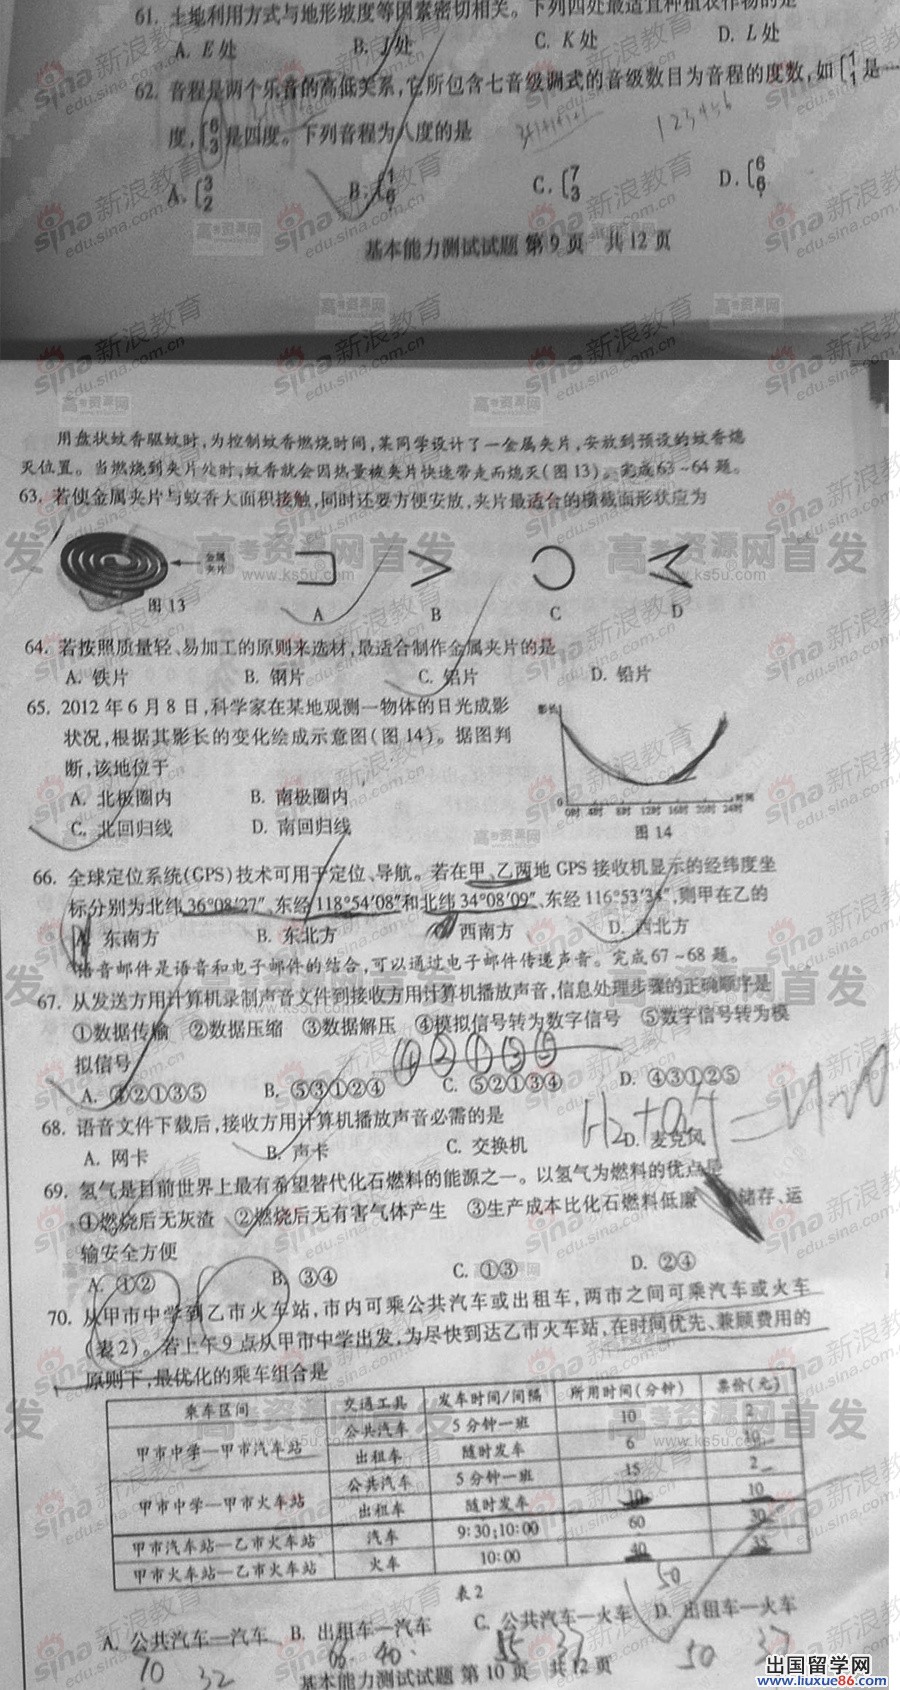 61. 土地利用方式与地形坡度等因素密切相关。下列四处最适宜种植农作物的是
A. E处 B. J处 C. K处 D. L处
62. 音程是两个乐音的高低关系,它所包含七音级调式的音级数目为音程的度数,如[1 1是一
度,[6 3是四度。下列音程为八度的是
A.[3 2 B.[1 6 C.[7 3 D.[6 6
基本能力测试试题 第9页 共12页
用盘状蚊香驱蚊时,为控制蚊香燃烧时间,某同学设计了一金属夹片,安放到预设的蚊香熄
灭位置。当燃烧到夹片处时,蚊香就会因热量被夹片快速带走而熄灭(图13)。完成63~64题。
63. 若使金属夹片与蚊香大面积接触,同时还要方便安放,夹片最适合的横截面形状应为
金属
夹片
图13
A B C D
64. 若按照质量轻、易加工的原则来选材,最适合制作金属夹片的是
A. 铁片 B. 钢片 C. 铝片 D. 铅片
65. 2012年6月8日,科学家在某地观测一物体的日光成影
状况,根据其影长的变化绘成示意图(图14)。据图判
断,该地位于
A. 北极圈内 B. 南极圈内
C. 北回归线 D. 南回归线
影长
0
0时 4时 8时 12时 16时 20时 24时 时间
图14
66. 全球定位系统(GPS)技术可用于定位、导航。若在甲、乙两地GPS接收机显示的经纬度坐
标分别为北纬36°08′27″、东经118°54′08″和北纬34°08′09″、东经116°53′34″,则甲在乙的
A. 东南方 B. 东北方 C. 西南方 D. 西北方
语音邮件是语音和电子邮件的结合,可以通过电子邮件传递声音。完成67~68题。
67. 从发送方用计算机录制声音文件到接收方用计算机播放声音,信息处理步骤的正确顺序是
①数据传输 ②数据压缩 ③数据解压 ④模拟信号转为数字信号 ⑤数字信号转为模
拟信号
④②①③⑤
A. ④②①③⑤ B. ⑤③①②④ C. ⑤②①③④ D. ④③①②⑤
68. 语音文件下载后,接收方用计算机播放声音必需的是
A. 网卡 B. 声卡 C. 交换机 D. 麦克风
69. 氢气是目前世界上最有希望替代化石燃料的能源之一。以氢气为燃料的优点是
①燃烧后无灰渣 ②燃烧后无有害气体产生 ③生产成本比化石燃料低廉 ④储存、运
输安全方便
A. ①② B. ③④ C. ①③ D. ②④
70. 从甲市中学到乙市火车站,市内可乘公共汽车或出租车,两市之间可乘汽车或火车
(表2)。若上午9点从甲市中学出发,为尽快到达乙市火车站,在时间优先、兼顾费用的
原则下,最优化的乘车组合是
乘车区间 交通工具 发车时间/间隔 所用时间(分钟) 票价(元)
甲市中学—甲市汽车站 公共汽车 5分钟一班 10 2
出租车 随时发车 6 10
甲市中学—甲市火车站 公共汽车 5分钟一班 15 2
出租车 随时发车 10 10
甲市汽车站—乙市火车站 汽车 9:30;10:00 60 30
甲市火车站—乙市火车站 火车 10:00 40 35
表2
50
A. 公共汽车—汽车 B. 出租车—汽车 C. 公共汽车—火车 D. 出租车—火车
70 32 66 40 55 37 50 37
基本能力测试试题 第10页 共12页
sina新浪教育
edu.sina.com.cn
高考资源网首发
www.ks5u.com
出国留学网
www.liuxue86.com